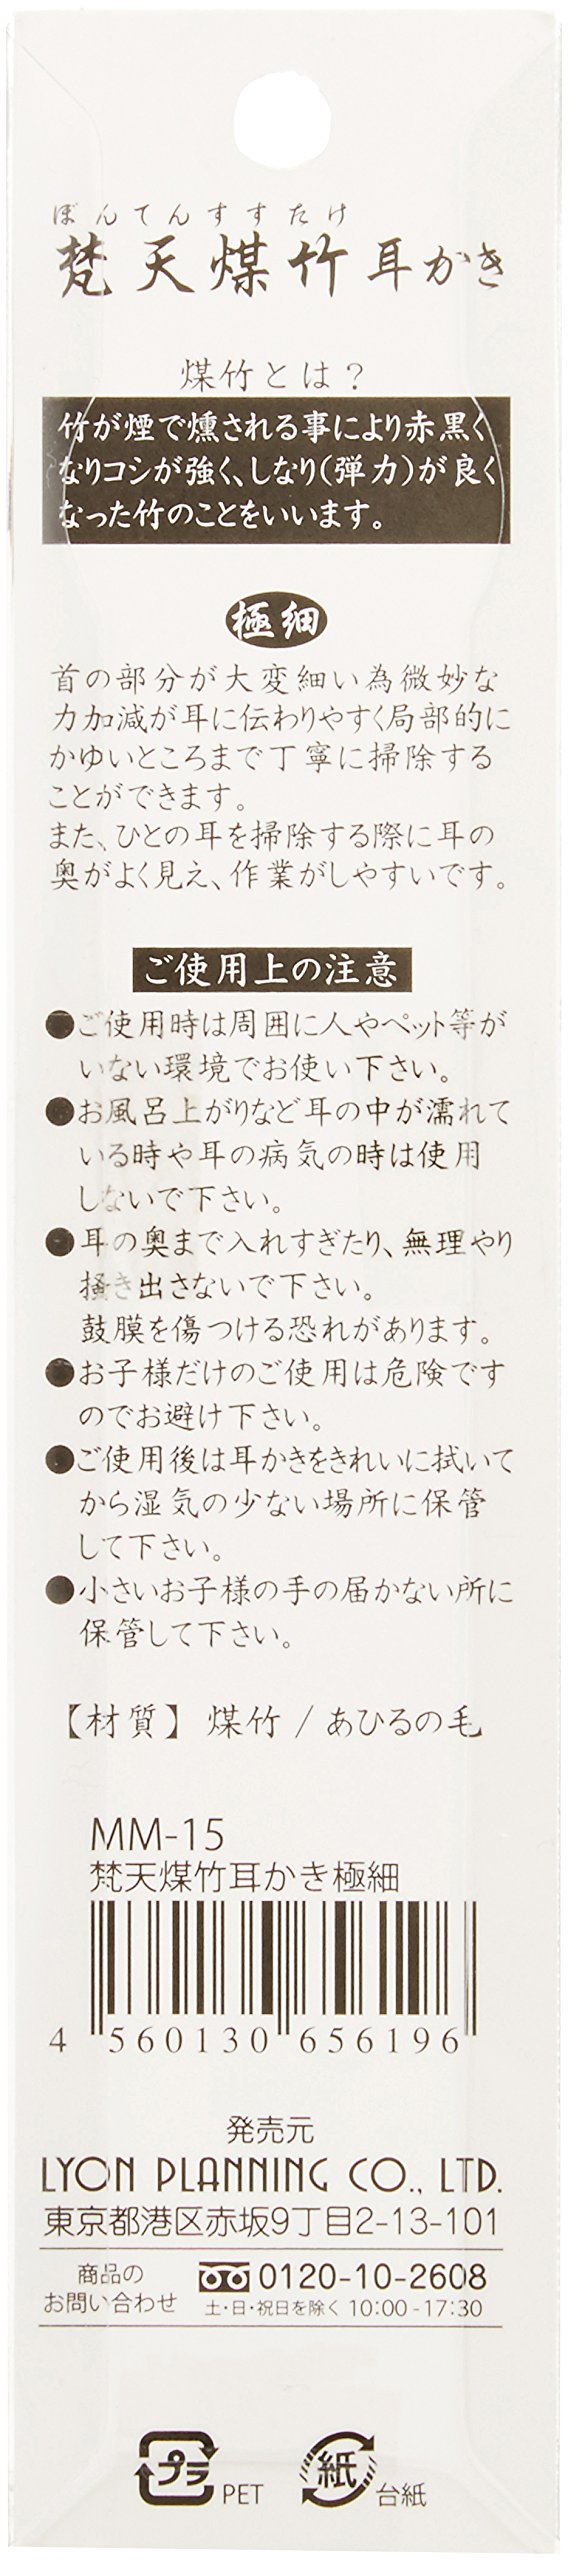 ぼんてんすすたけ
梵天煤竹耳かき
煤竹とは?
竹が煙で燻される事により赤黒く
なりコシが強く、しなり(弾力)が良く
なった竹のことをいいます。
極細
首の部分が大変細い為微妙な
力加減が耳に伝わりやすく局部的に
かゆいところまで丁寧に掃除する
ことができます。
また、ひとの耳を掃除する際に耳の
奥がよく見え、作業がしやすいです。
ご使用上の注意
●ご使用時は周囲に人やペット等が
いない環境でお使い下さい。
●お風呂上がりなど耳の中が濡れて
いる時や耳の病気の時は使用
しないで下さい。
●耳の奥まで入れすぎたり、無理やり
掻き出さないで下さい。
鼓膜を傷つける恐れがあります。
●お子様だけのご使用は危険です
のでお避け下さい。
●ご使用後は耳かきをきれいに拭いて
から湿気の少ない場所に保管
して下さい。
●小さいお子様の手の届かない所に
保管して下さい。
【材質】煤竹/あひるの毛
MM-15
梵天煤竹耳かき極細
4 560130 656196
発売元
LYON PLANNING CO., LTD.
東京都港区赤坂9丁目2-13-101
商品の
お問い合わせ
0120-10-2608
土・日・祝日を除く 10:00-17:30
プラ PET
紙 台紙